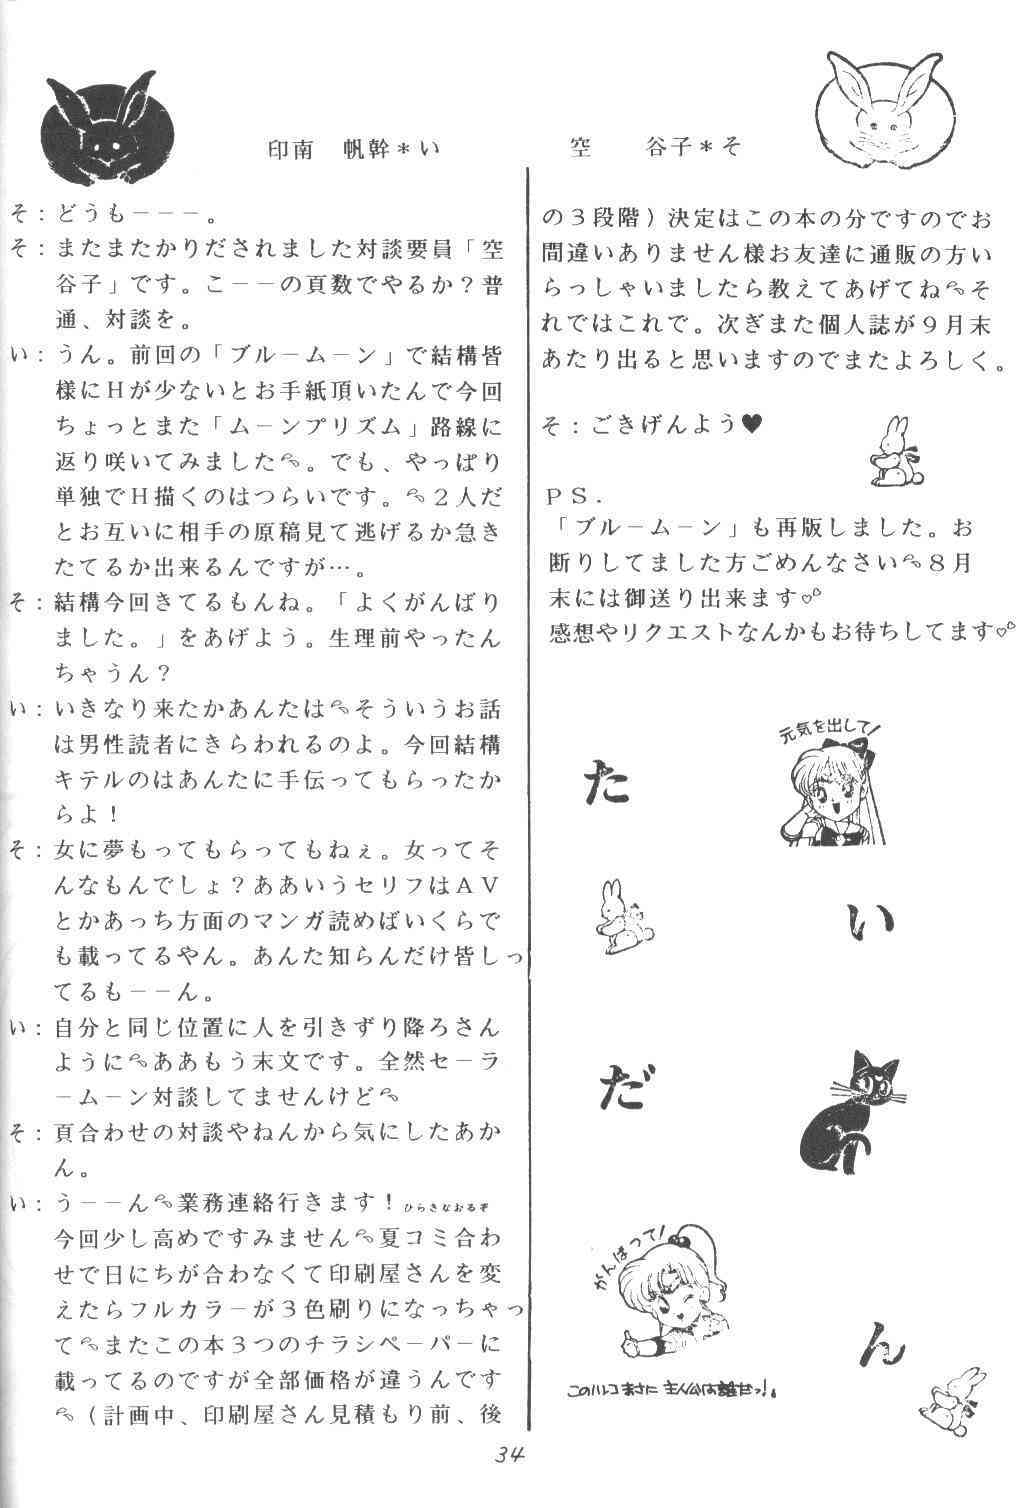 印南　帆幹＊い　　空　谷子＊そ
そ：どうも−−−。
そ：またまたかりだされました対談要員「空
谷子」です。こ−−の頁数でやるか？普
通、対談を。
い：うん。前回の「ブル−ム−ン」で結構皆
様にＨが少ないとお手紙頂いたんで今回
ちょっとまた「ム−ンプリズム」路線に
返り咲いてみました。でも、やっぱり
単独でＨ描くのはつらいです。２人だ
とお互いに相手の原稿見て逃げるか急き
たてるか出来るんですが…。
そ：結構今回きてるもんね。「よくがんばり
ました。」をあげよう。生理前やったん
ちゃうん？
い：いきなり来たかあんたはそういうお話
は男性読者にきらわれるのよ。今回結構
キテルのはあんたに手伝ってもらったか
らよ！
そ：女に夢もってもらってもねぇ。女ってそ
んなもんでしょ？ああいうセリフはＡＶ
とかあっち方面のマンガ読めばいくらで
も載ってるやん。あんた知らんだけ皆しっ
てるも−−ん。
い：自分と同じ位置に人を引きずり降ろさん
ようにああもう末文です。全然セ−ラ
−ム−ン対談してませんけど
そ：頁合わせの対談やねんから気にしたあか
ん。
い：う−−ん業務連絡行きます！ひらきなおるぞ
今回少し高めですみません夏コミ合わ
せで日にちが合わなくて印刷屋さんを変
えたらフルカラ−が３色刷りになっちゃっ
てまたこの本３つのチラシペ−パ−に
載ってるのですが全部価格が違うんです
（計画中、印刷屋さん見積もり前、後
の３段階）決定はこの本の分ですのでお
間違いありません様お友達に通販の方い
らっしゃいましたら教えてあげてねそ
れではこれで。次ぎまた個人誌が９月末
あたり出ると思いますのでまたよろしく。
そ：ごきげんよう♥
ＰＳ．
「ブル−ム−ン」も再版しました。お
断りしてました方ごめんなさい８月
末には御送り出来ます♡
感想やリクエストなんかもお待ちしてます♡
元気を出して！
た
い
だ
ん
がんばって！
このハルコまさに主人公は誰せっ！。
34